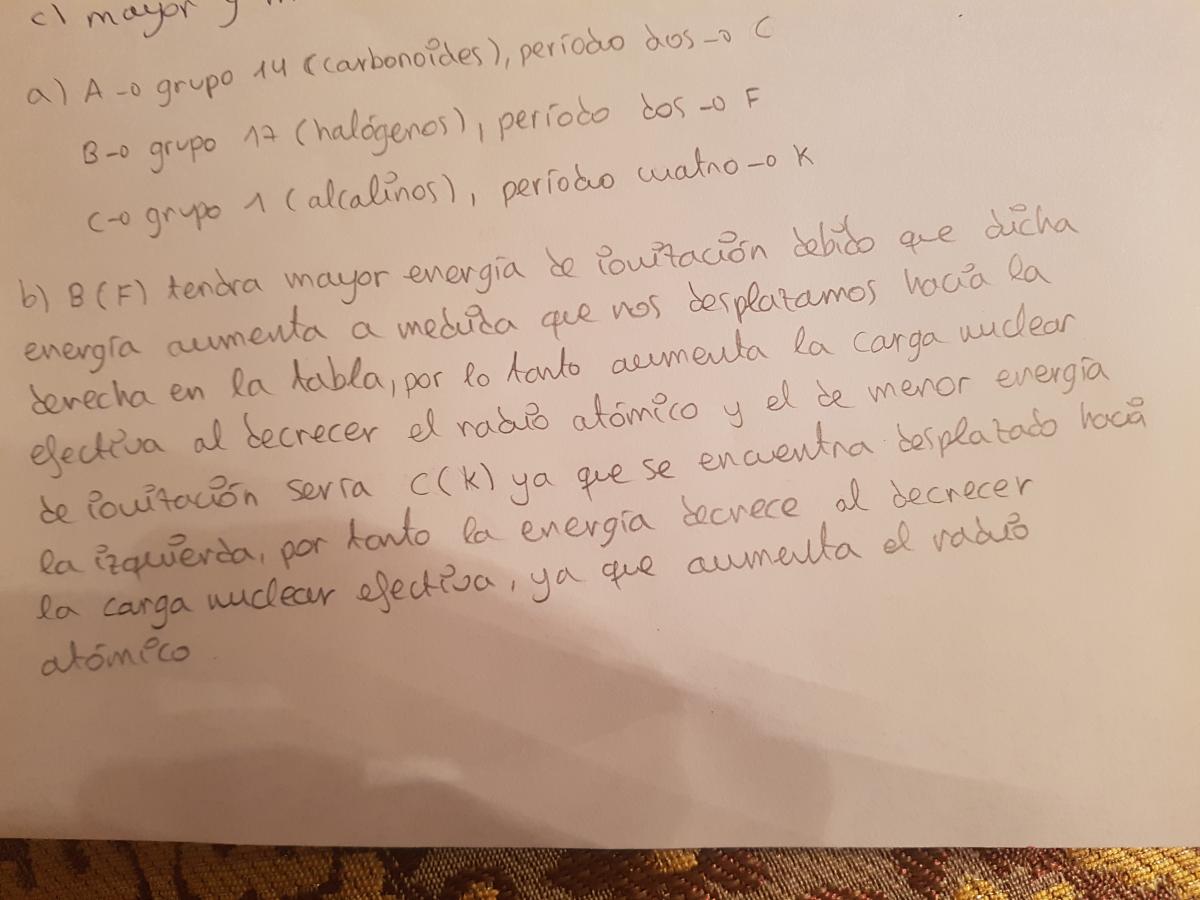 c) mayor y
a) A → grupo 14 (carbonoides), período dos → C
B → grupo 17 (halógenos), período dos → F
C → grupo 1 (alcalinos), período cuatro → K
b) B (F) tendra mayor energía de ionización debido que dicha
energía aumenta a medida que nos desplazamos hacia la
derecha en la tabla, por lo tanto aumenta la carga nuclear
efectiva al decrecer el radio atómico y el de menor energía
de ionización sería C (K) ya que se encuentra desplazado hacia
la izquierda, por tanto la energía decrece al decrecer
la carga nuclear efectiva, ya que aumenta el radio
atómico